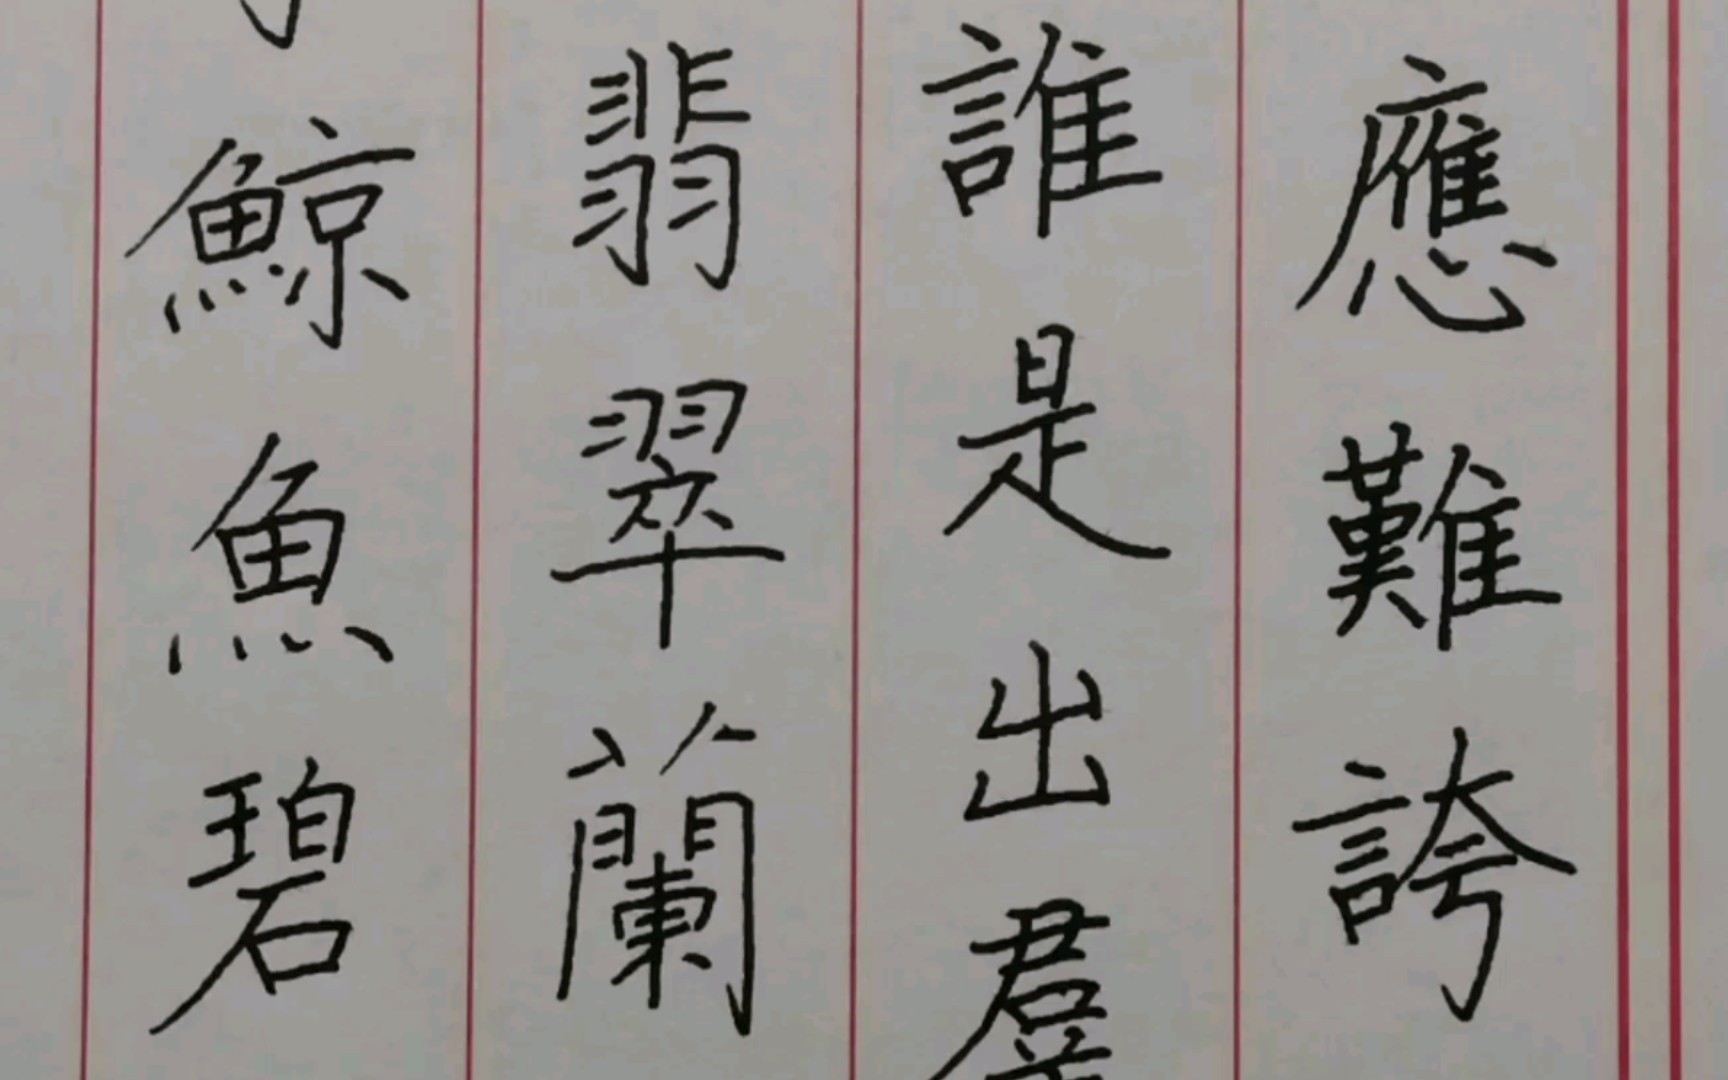 應難誇
誰是出羣
翡翠蘭
鯨魚碧